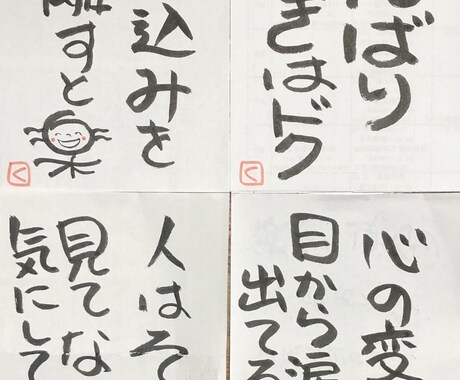 ばり
ぎはドク
く
込みを
すと楽
く
心の変
目から涙
出てる
人はそ
見てな
気にして